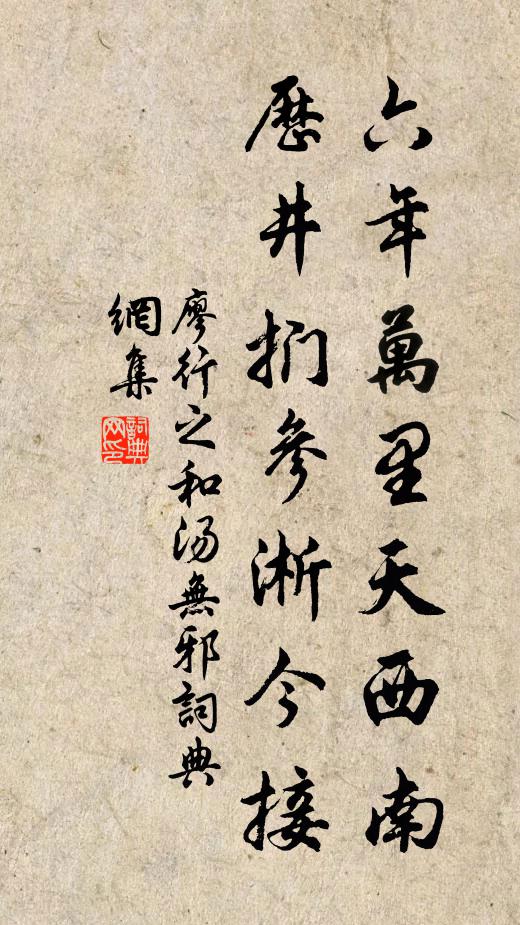 六年萬里天西南
歷井捫參淅今接
廖行之和湯無邪詞典
網集
詞典
网印